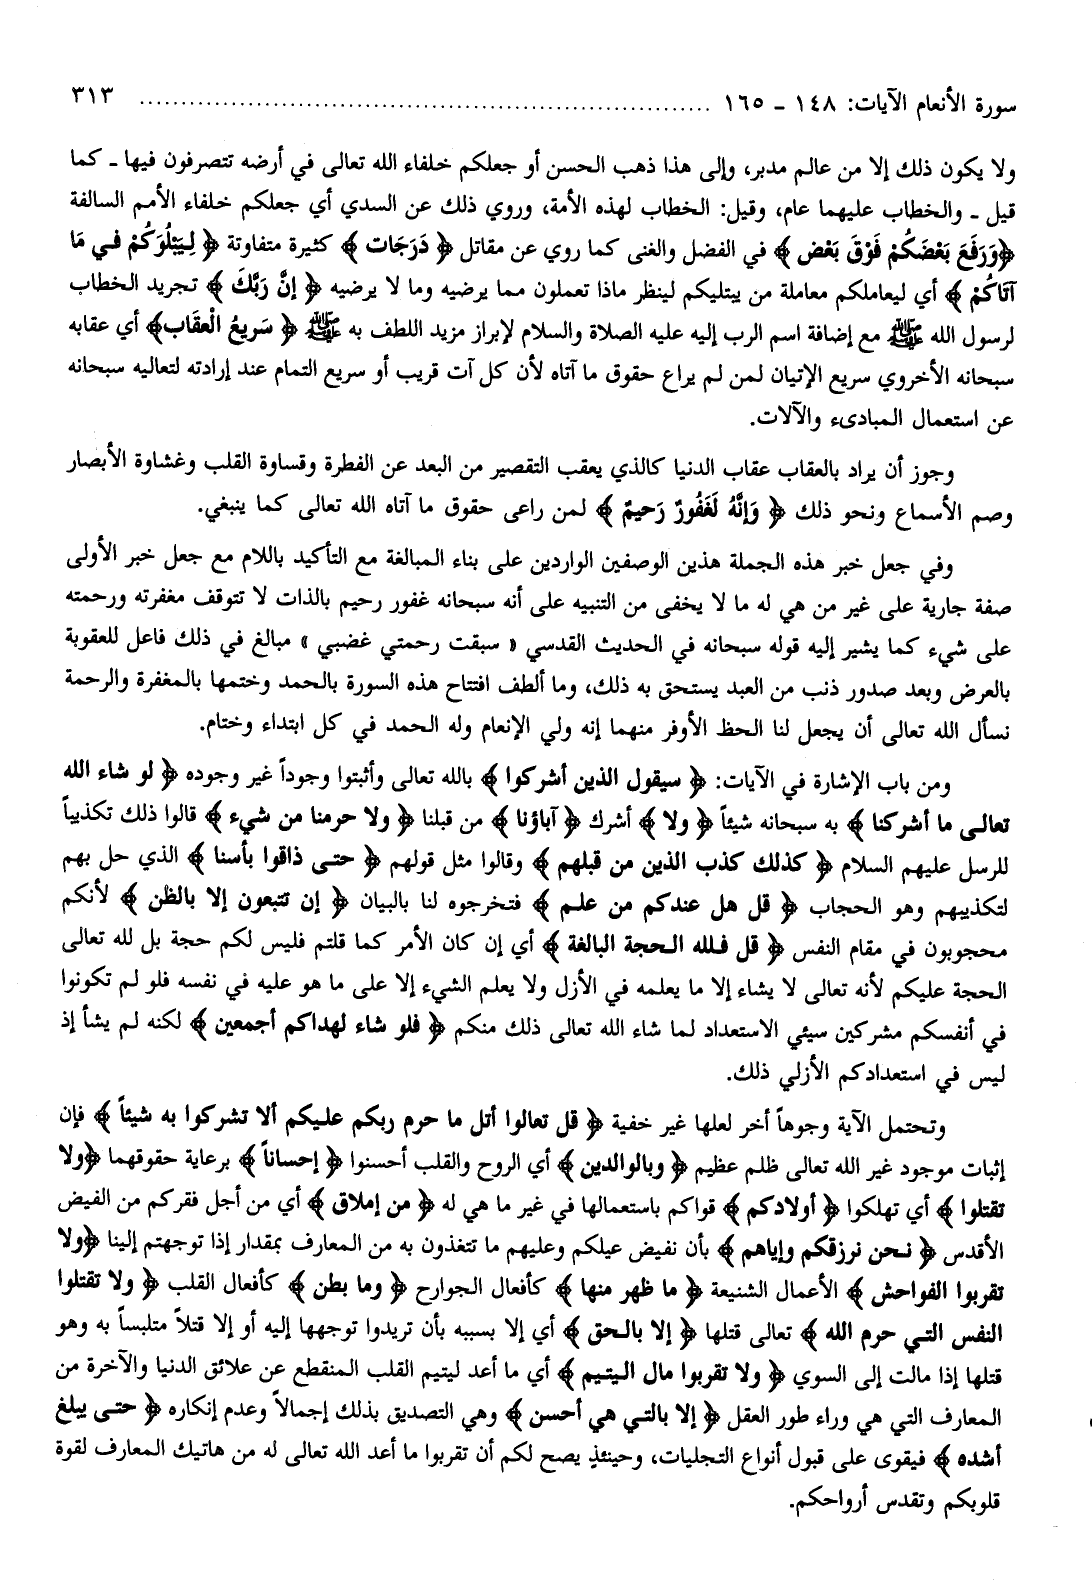 سورة الأنعام الآيات: ١٤٨ ـ ١٦٥ ........................................................................ ٣١٣
ولا يكون ذلك إلا من عالم مدبر، وإلى هذا ذهب الحسن أو جعلكم خلفاء الله تعالى في أرضه تتصرفون فيها ـ كما
قيل ـ والخطاب عليهما عام، وقيل: الخطاب لهذه الأمة، وروي ذلك عن السدي أي جعلكم خلفاء الأمم السالفة
﴿وَرَفَعَ بَعْضَكُمْ فَوْقَ بَعْضٍ ﴾ في الفضل والغنى كما روي عن مقاتل ﴿ دَرَجَات ﴾ كثيرة متفاوتة ﴿ لِيَبْلُوَكُمْ في مَا
آتَاكُمْ ﴾ أي ليعاملكم معاملة من يبتليكم لينظر ماذا تعملون مما يرضيه وما لا يرضيه ﴿ إنَّ رَبَّكَ ﴾ تجريد الخطاب
لرسول الله ﷺ مع إضافة اسم الرب إليه عليه الصلاة والسلام لإبراز مزيد اللطف به ﷺ ﴿ سَرِيعُ الْعقَاب﴾ أي عقابه
سبحانه الأخروي سريع الإتيان لمن لم يراع حقوق ما آتاه لأن كل آت قريب أو سريع التمام عند إرادته لتعاليه سبحانه
عن استعمال المبادىء والآلات.
وجوز أن يراد بالعقاب عقاب الدنيا كالذي يعقب التقصير من البعد عن الفطرة وقساوة القلب وغشاوة الأبصار
وصم الأسماع ونحو ذلك ﴿ وَإنَّهُ لَغَفُورٌ رَحيمٌ ﴾ لمن راعى حقوق ما آتاه الله تعالى كما ينبغي.
وفي جعل خبر هذه الجملة هذين الوصفين الواردين على بناء المبالغة مع التأكيد باللام مع جعل خبر الأولى
صفة جارية على غير من هي له ما لا يخفى من التنبيه على أنه سبحانه غفور رحيم بالذات لا تتوقف مغفرته ورحمته
على شيء كما يشير إليه قوله سبحانه في الحديث القدسي « سبقت رحمتي غضبي » مبالغ في ذلك فاعل للعقوبة
بالعرض وبعد صدور ذنب من العبد يستحق به ذلك، وما ألطف افتتاح هذه السورة بالحمد وختمها بالمغفرة والرحمة
نسأل الله تعالى أن يجعل لنا الحظ الأوفر منهما إنه ولي الإنعام وله الحمد في كل ابتداء وختام.
ومن باب الإشارة في الآيات: ﴿ سيقول الذين أشركوا ﴾ بالله تعالى وأثبتوا وجوداً غير وجوده ﴿ لو شاء الله
تعالى ما أشركنا ﴾ به سبحانه شيئاً ﴿ ولا ﴾ أشرك ﴿ آباؤنا ﴾ من قبلنا ﴿ ولا حرمنا من شيء ﴾ قالوا ذلك تكذيباً
للرسل عليهم السلام ﴿ كذلك كذب الذين من قبلهم ﴾ وقالوا مثل قولهم ﴿ حتى ذاقوا بأسنا ﴾ الذي حل بهم
لتكذيبهم وهو الحجاب ﴿ قل هل عندكم من علم ﴾ فتخرجوه لنا بالبيان ﴿ إن تتبعون إلا بالظن ﴾ لأنكم
محجوبون في مقام النفس ﴿ قل فلله الحجة البالغة ﴾ أي إن كان الأمر كما قلتم فليس لكم حجة بل لله تعالى
الحجة عليكم لأنه تعالى لا يشاء إلا ما يعلمه في الأزل ولا يعلم الشيء إلا على ما هو عليه في نفسه فلو لم تكونوا
في أنفسكم مشركين سيئي الاستعداد لما شاء الله تعالى ذلك منكم ﴿ فلو شاء لهداكم أجمعين ﴾ لكنه لم يشأ إذ
ليس في استعدادكم الأزلي ذلك.
وتحتمل الآية وجوهاً أخر لعلها غير خفية ﴿ قل تعالوا أتل ما حرم ربكم عليكم ألا تشركوا به شيئاً ﴾ فإن
إثبات موجود غير الله تعالى ظلم عظيم ﴿ وبالوالدين ﴾ أي الروح والقلب أحسنوا ﴿ إحساناً ﴾ برعاية حقوقهما ﴿ولا
تقتلوا ﴾ أي تهلكوا ﴿ أولادكم ﴾ قواكم باستعمالها في غير ما هي له ﴿ من إملاق ﴾ أي من أجل فقركم من الفيض
الأقدس ﴿ نحن نرزقكم وإياهم ﴾ بأن نفيض عيلكم وعليهم ما تتغذون به من المعارف بمقدار إذا توجهتم إلينا ﴿ولا
تقربوا الفواحش ﴾ الأعمال الشنيعة ﴿ ما ظهر منها ﴾ كأفعال الجوارح ﴿ وما بطن ﴾ كأفعال القلب ﴿ ولا تقتلوا
النفس التي حرم الله ﴾ تعالى قتلها ﴿ إلا بالحق ﴾ أي إلا بسببه بأن تريدوا توجهها إليه أو إلا قتلاً متلبساً به وهو
قتلها إذا مالت إلى السوي ﴿ ولا تقربوا مال اليتيم ﴾ أي ما أعد ليتيم القلب المنقطع عن علائق الدنيا والآخرة من
المعارف التي هي وراء طور العقل ﴿ إلا بالتي هي أحسن ﴾ وهي التصديق بذلك إجمالاً وعدم إنكاره ﴿ حتى يبلغ
أشده ﴾ فيقوى على قبول أنواع التجليات، وحينئذٍ يصح لكم أن تقربوا ما أعد الله تعالى له من هاتيك المعارف لقوة
قلوبكم وتقدس أرواحكم.